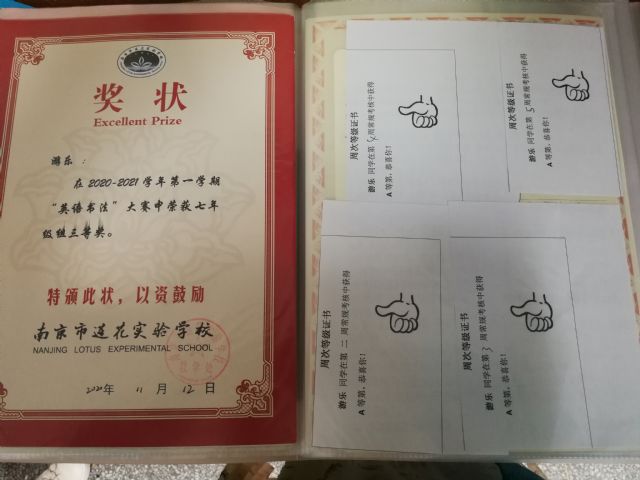 奖状
Excellent Prize
游乐：
在2020-2021学年第一学期
“英语书法”大赛中荣获七年
级组三等奖。
特颁此状，以资鼓励
南京市莲花实验学校
NANJING LOTUS EXPERIMENTAL SCHOOL
2020年 11 月 12 日
周次等级证书
游乐 同学在第 周常规考核中获得
A 等第，恭喜你！
周次等级证书
游乐 同学在第 5 周常规考核中获得
A 等第，恭喜你！
周次等级证书
游乐 同学在第 二 周常规考核中获得
A 等第，恭喜你！
周次等级证书
游乐 同学在第 3 周常规考核中获得
A 等第，恭喜你！